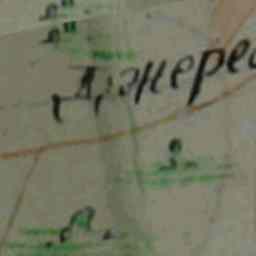 Джере